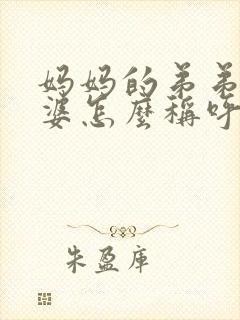 妈妈的弟弟
婆怎麼稱呼
朱盈庫